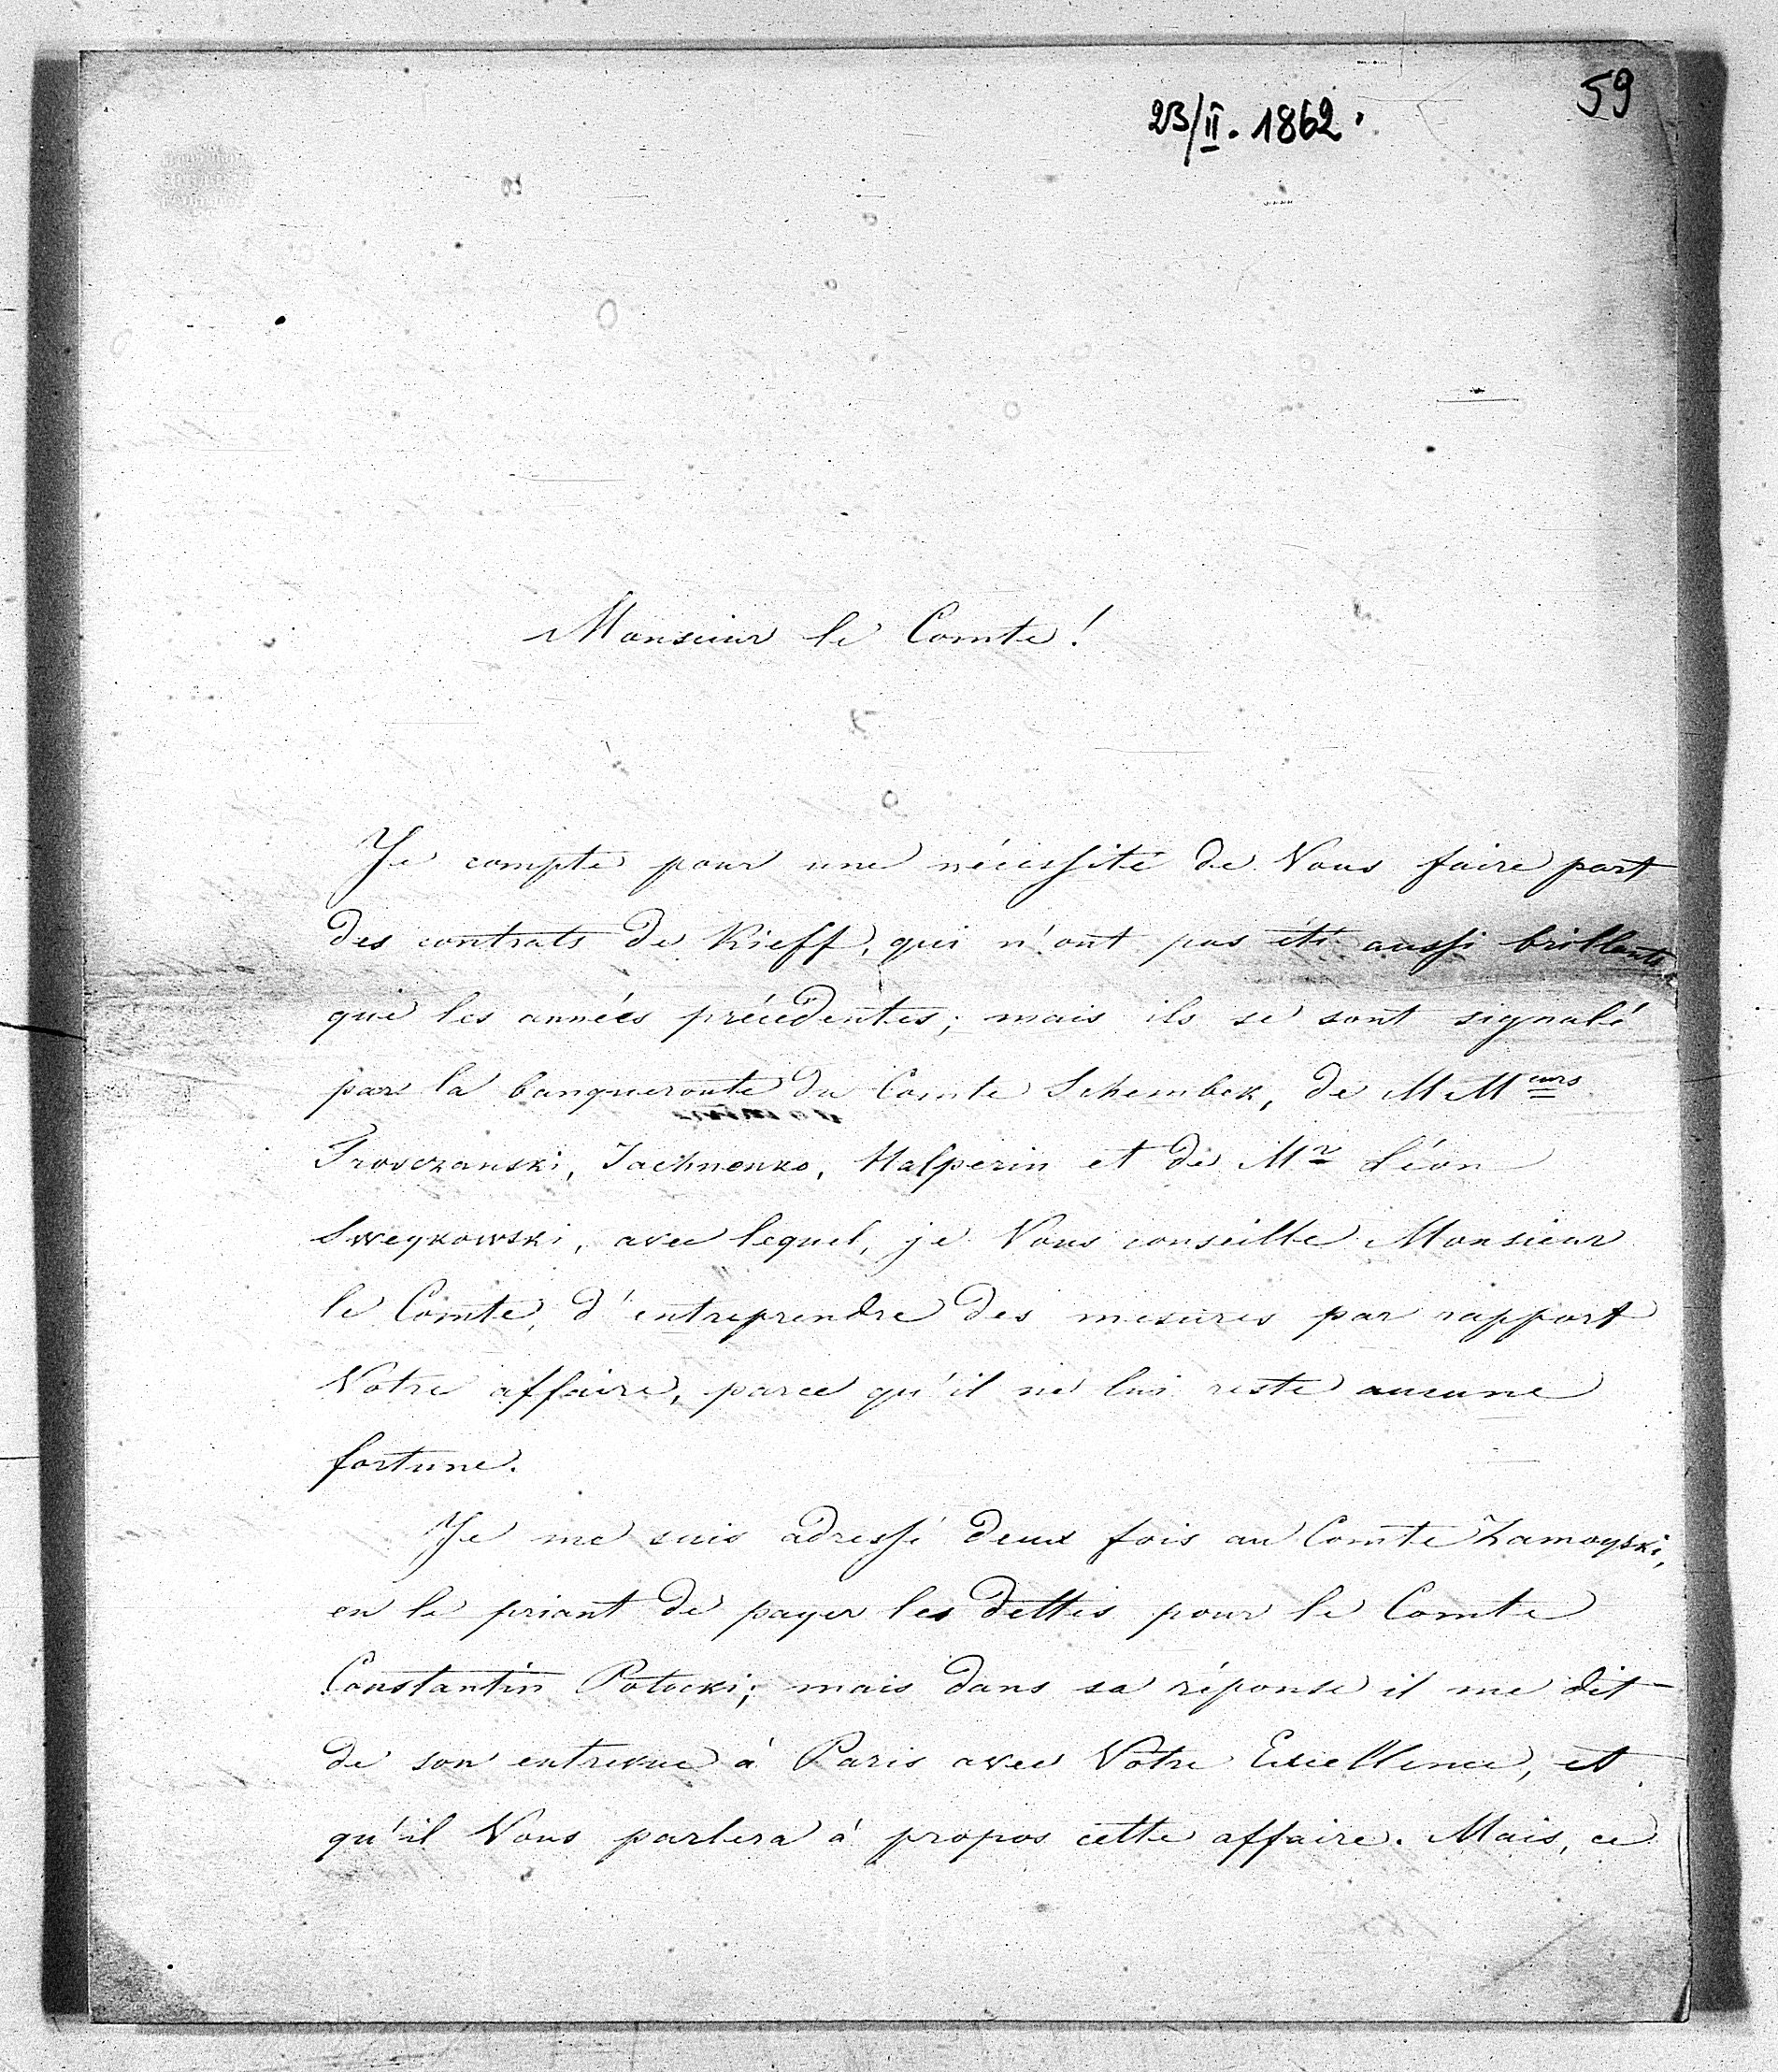 59
23/II. 1862.
Monsieur le Comte!
Je compte pour une nécessité de Vous faire part
des contrats de Kieff, qui n'ont pas été aussi brillants
que les années précédentes; mais ils se sont signalé
par la banqueroute du Comte Schembek, de M Meurs
Trosczanski, Jachnenko, Halperin et de Mr Léon
Sweykowski, avec lequel, je Vous conseille Monsieur
le Comte, d'entreprendre des mesures par rapport
Votre affaire, parce qu'il ne lui reste aucune
fortune.
Je me suis adressé deux fois au Comte Zamoyski,
en le priant de payer les dettes pour le Comte
Constantin Potocki; mais dans sa réponse il me dit
de son entrevue à Paris avec Votre Excellence, et
qu'il Vous parlera à propos cette affaire. Mais, ce